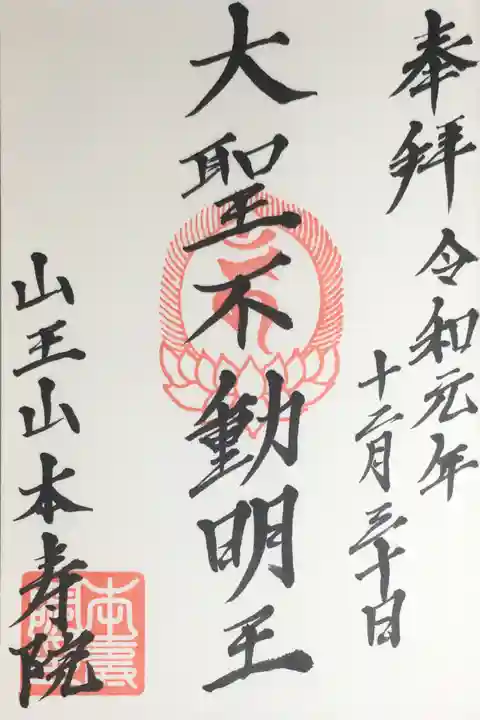 奉拝 令和元年
十二月三十日
大聖不動明王
山王山本寿院